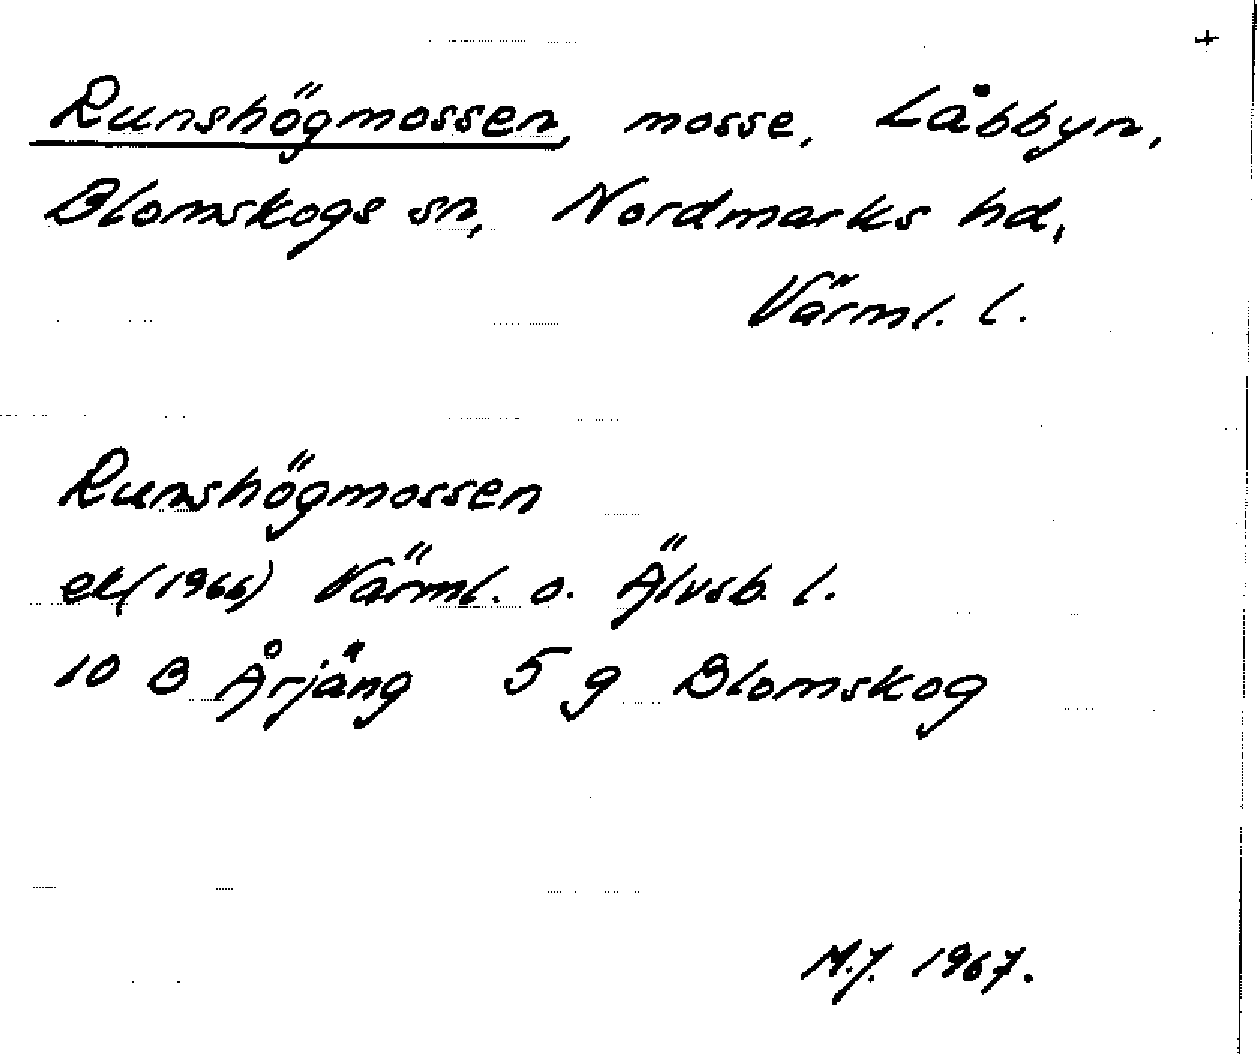 +
Runshögmossen, mosse, Låbbyn,
Blomskogs sn, Nordmarks hd,
Värml. l.
Runshögmossen
ek (1966) Värml. o. Älvsb. l.
10 B Årjäng 5 g Blomskog
M.J. 1967.